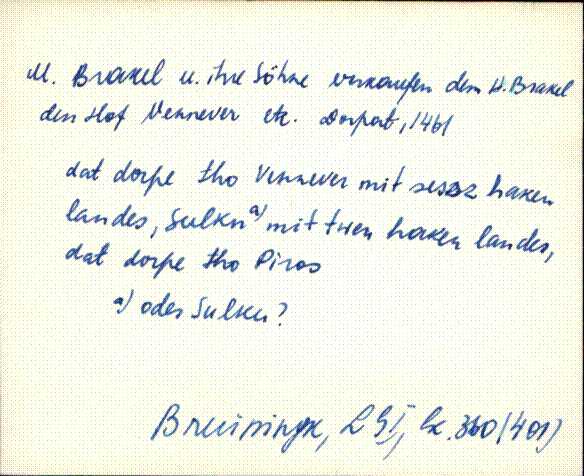 M. Brakel u. ihre Söhne verkaufen dem H. Brakel
den Hof Vennever etc. Dorpat, 1461
dat dorpe tho Vennever mit sesz haken
landes, Sulkn a) mit twen haken landes,
dat dorpe tho Piros
a) oder Sulku?
Bruiningk, LGI, lk. 360 (401)